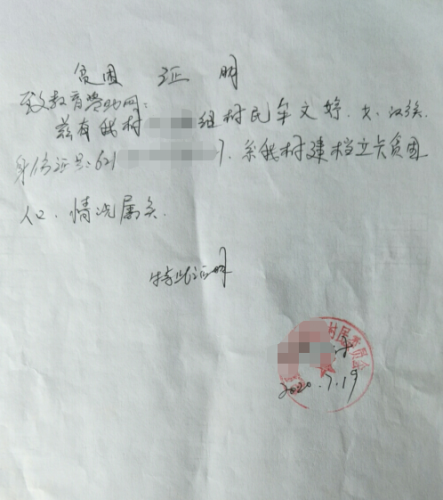 贫困证明
致教育资助网:
兹有我村 组村民牟文婷、女、汉族
身份证号:621 7、系我村建档立卡贫困
人口、情况属实.
特此证明
村民委员会
2020.7.19